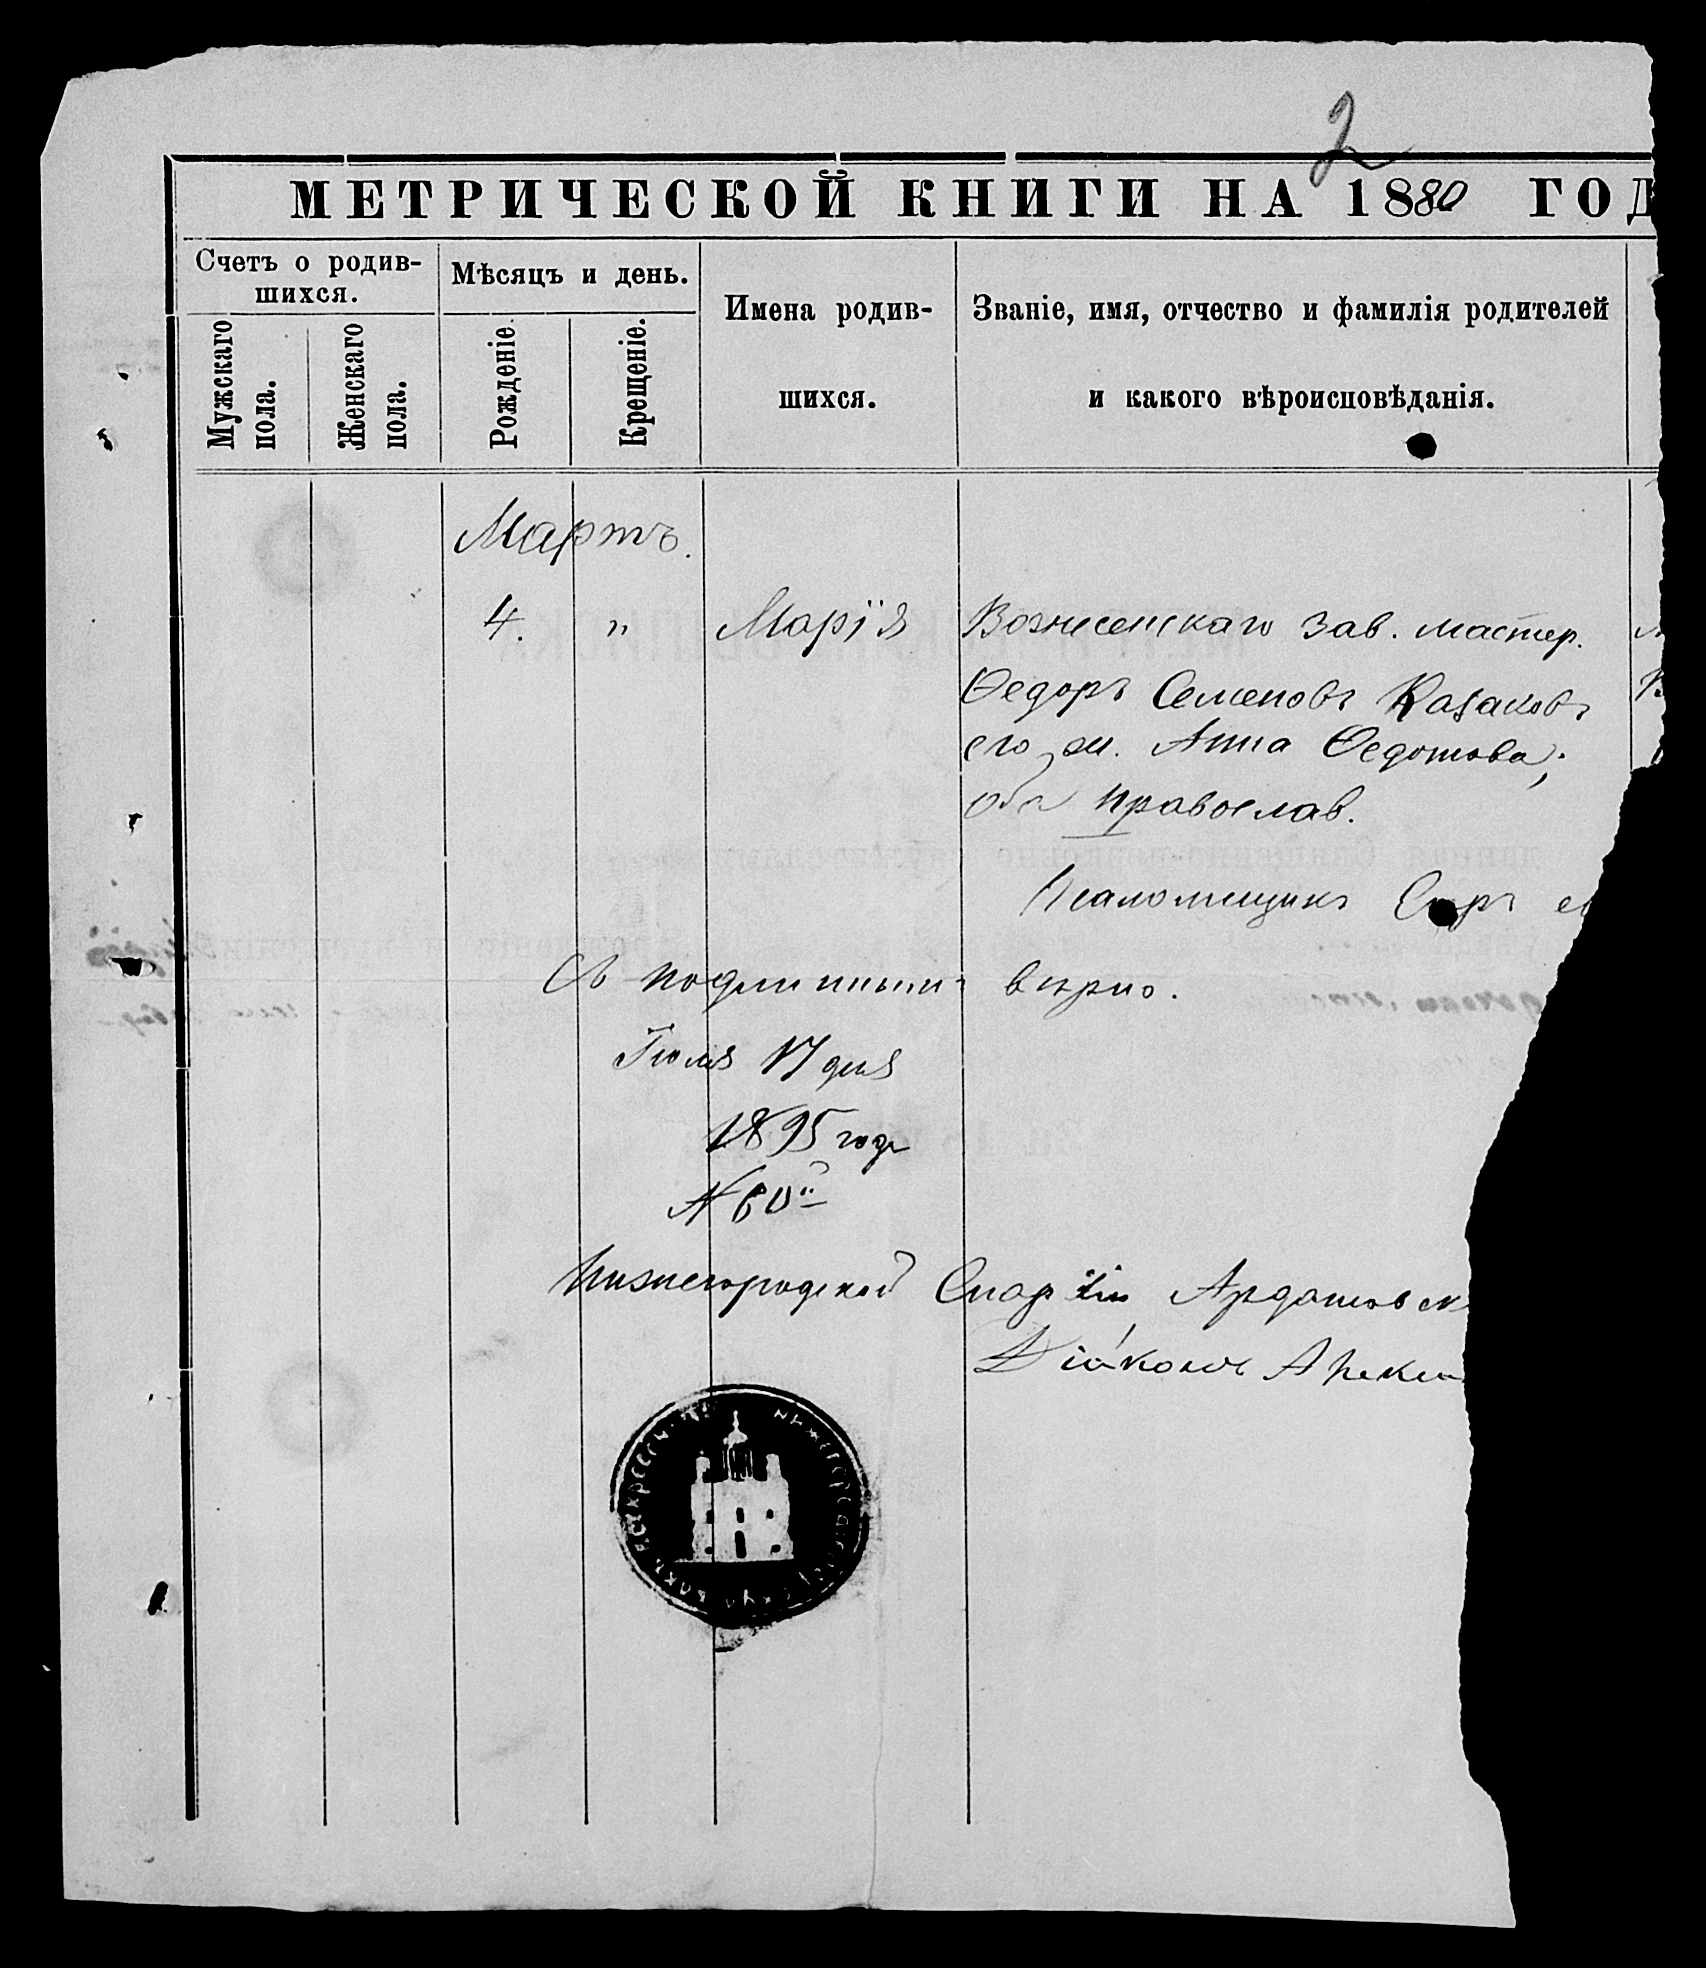 2
МЕТРИЧЕСКОЙ КНИГИ НА 1880 ГОД
Счетъ о родив-
шихся.
Мѣсяцъ и день.
Имена родив-
шихся.
Званіе, имя, отчество и фамилія родителей
и какого вѣроисповѣданія.
Мужскаго
пола.
Женскаго
пола.
Рожденіе.
Крещеніе.
Мартъ.
4. " Марія Вознесенскаго зав. мастер.
Ѳедоръ Семеновъ Казаковъ
его ж. Анна Ѳедотова;
оба православ.
Псаломщикъ
Съ подлиннымъ вѣрно.
Іюля 17 дня
1895 года
№ 60й
Нижегородской Епархіи Ардатовск
Діаконъ Алекса